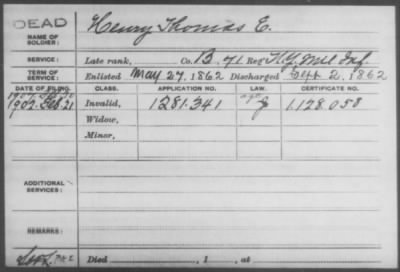 DEAD
NAME OF SOLDIER: Henry Thomas E.
SERVICE: Late rank, Co. B, 71 Reg't N.Y. Mil Inf.
TERM OF SERVICE: Enlisted May 27, 1862 Discharged Sept 2, 1862
DATE OF FILING. CLASS. APPLICATION NO. LAW. CERTIFICATE NO.
1902 Feb 21 Invalid, 1281.341 1.128.058
Widow,
Minor,
ADDITIONAL SERVICES:
REMARKS:
Died , 1 , at